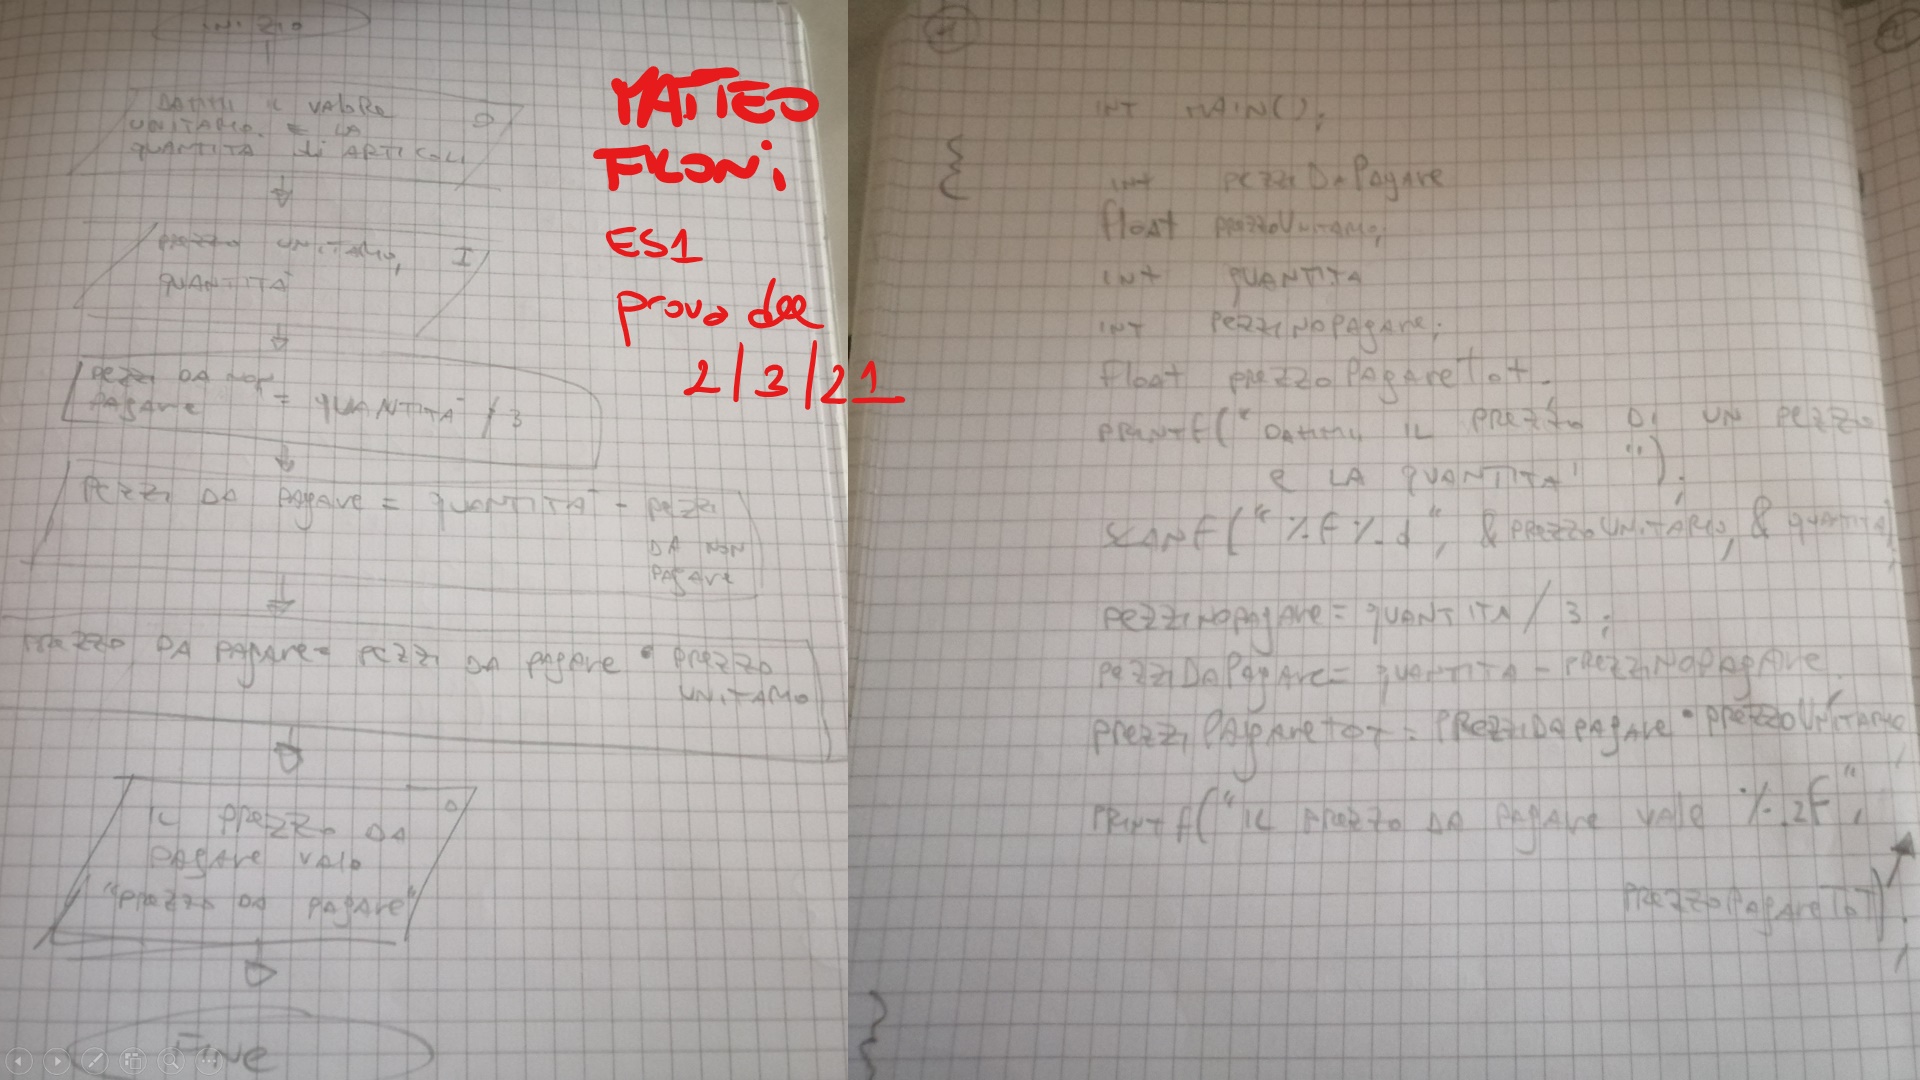 INIZIO
DAMMI IL VALORE O
UNITARIO. E LA
QUANTITA di ARTICOLI
PREZZO UNITARIO, I
QUANTITA'
PEZZI DA NON
PAGARE = QUANTITA' / 3
PEZZI DA PAGARE = QUANTITA' - PEZZI
DA NON
PAGARE
PREZZO DA PAGARE = PEZZI DA PAGARE • PREZZO
UNITARIO
IL PREZZO DA O
PAGARE VALE
"PREZZO DA PAGARE"
FINE
MATTEO
FILONI
ES1
prova del
2/3/21
1
INT MAIN();
{
INT PEZZIDAPAGARE
float PREZZOUNITARIO;
INT QUANTITA
INT PEZZINOPAGARE;
float PREZZOPAGARETOT;
PRINTF("DAMMI IL PREZZO DI UN PEZZO
E LA QUANTITA' ");
SCANF("%F%d", &PREZZOUNITARIO, &QUATITA);
PEZZINOPAGARE= QUANTITA / 3;
PEZZIDAPAGARE= QUANTITA - PREZZINOPAGARE.
PREZZIPAGARETOT = PREZZIDAPAGARE • PREZZOUNITARIO;
PRINTF("IL PREZZO DA PAGARE VALE %.2F",
PREZZOPAGARETOT);
}